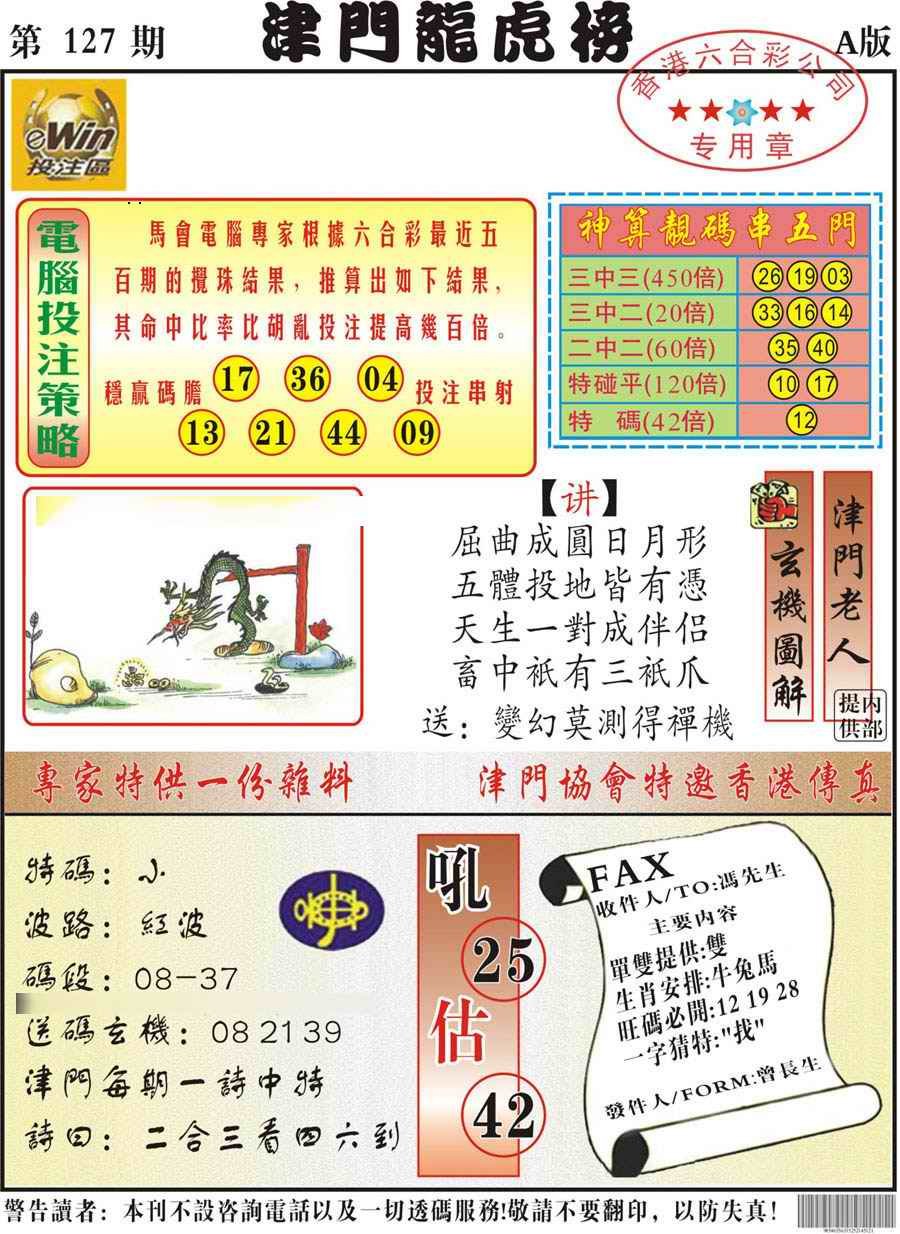 第 127 期
津門龍虎榜
A版
香港六合彩公司
★★★★
专用章
eWin
投注區
電腦投注策略
馬會電腦專家根據六合彩最近五
百期的攪珠結果，推算出如下結果，
其命中比率比胡亂投注提高幾百倍。
穩贏碼膽 17 36 04 投注串射
13 21 44 09
神算靚碼串五門
三中三(450倍) 26 19 03
三中二(20倍) 33 16 14
二中二(60倍) 35 40
特碰平(120倍) 10 17
特 碼(42倍) 12
【讲】
屈曲成圓日月形
五體投地皆有憑
天生一對成伴侣
畜中衹有三衹爪
送：變幻莫測得禪機
玄機圖解
津門老人
内部提供
專家特供一份雜料
津門協會特邀香港傳真
特碼：小
波路：紅波
碼段：08-37
送碼玄機：08 21 39
津門每期一詩中特
詩曰：二合三看四六到
吼
25
估
42
FAX
收件人/TO:馮先生
主要内容
單雙提供:雙
生肖安排:牛兔馬
旺碼必開:12 19 28
一字猜特:"找"
發件人/FORM:曾長生
警告讀者：本刊不設咨詢電話以及一切透碼服務!敬請不要翻印，以防失真!